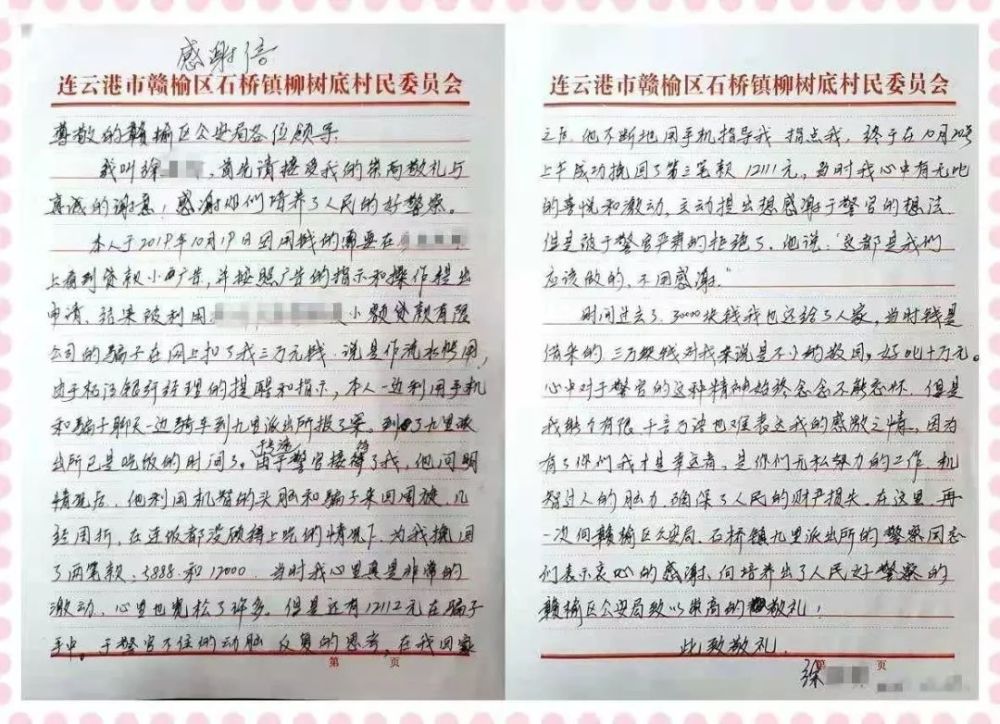 感谢信
连云港市赣榆区石桥镇柳树底村民委员会
尊敬的赣榆区公安局各位领导
我叫徐 首先请接受我的崇高敬礼与
真诚的谢意,感谢你们培养了人民的好警察。
本人于2019年10月19日因用钱的需要在
上看到贷款小广告,并按照广告的指示和操作提出
申请、结果被利用 小额贷款有限
公司的骗子在网上扣了我三万元钱.说是作流水费用,
由于 银行经理的提醒和指示,本人一边利用手机
和骗子聊天一边骑车到九里派出所报了案.到了九里派
出所已是吃饭的时间了。由于警官接待了我,他问明
情况后.他利用机智的头脑和骗子来回周旋.几
经周折.在连饭都没顾得上吃的情况下.为我挽回
了两笔款.5888.和12000.当时我心里真是非常的
激动、心里也宽松了许多。但是还有12112元在骗子
手中。于警官不住的动脑 反复的思考,在我回家
第 页
连云港市赣榆区石桥镇柳树底村民委员会
之后.他不断地用手机指导我 指点我,终于在10月20号
上午成功挽回了第三笔款 12111元,当时我心中有无比
的喜悦和激动.主动提出想感谢于警官的想法.
但是被于警官严肃的拒绝了.他说.“这都是我们
应该做的、不用感谢.”
时间过去了.30000块钱我也还给了人家,当时钱是
借来的 三万块钱对我来说是不小的数目.好比十万元。
心中对于警官的这种精神始终念念不能忘怀.但是
我能力有限 千言万语也难表达我的感激之情.因为
有了你们我才是幸运者,是你们无私努力的工作.机
智过人的脑力.确保了人民的财产损失.在这里.再
一次向赣榆区公安局、石桥镇九里派出所的警察同志
们表示衷心的感谢、向培养出了人民好警察的
赣榆区公安局致以崇高的敬礼!
此致敬礼.
第 页
徐